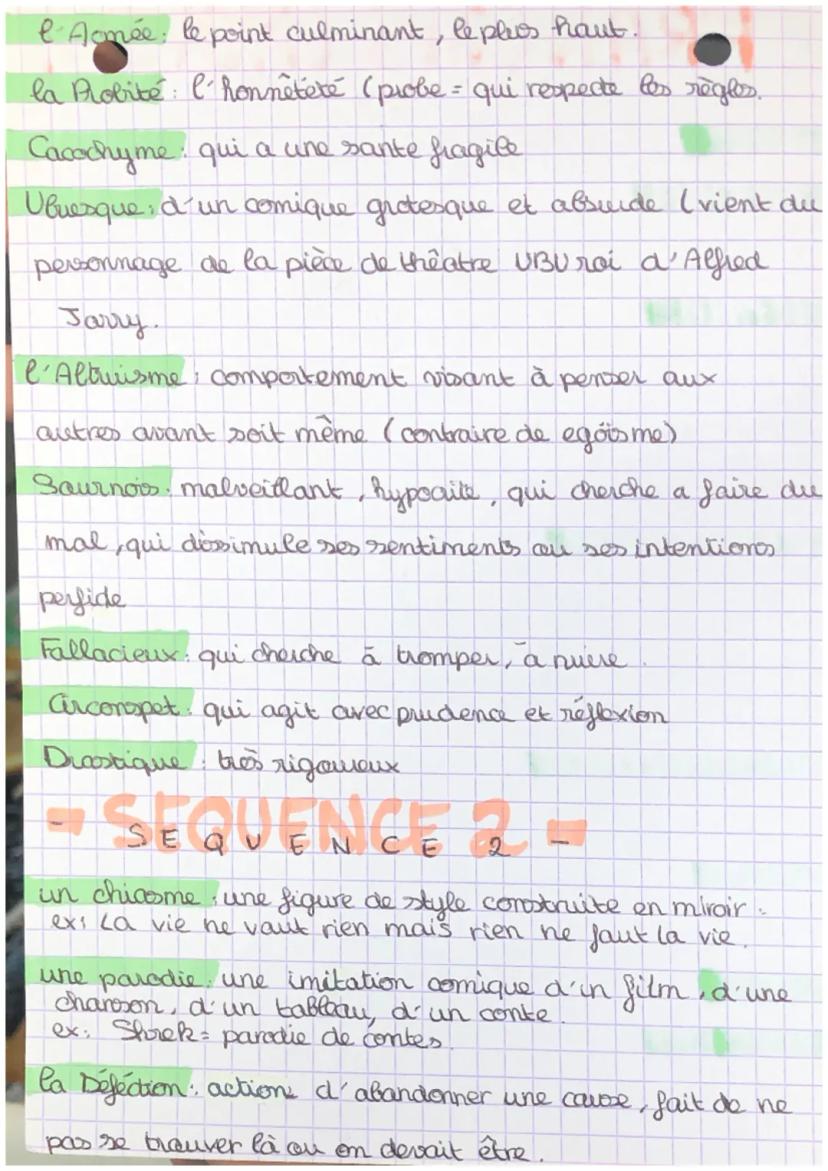 l'Acmée : le point culminant, le plus haut.
la Probité : l'honnêteté (probe = qui respecte les règles.
Cacochyme : qui a une sante fragile
Ubuesque : d'un comique grotesque et absurde (vient du
personnage de la pièce de thêatre UBU roi d'Alfred
Jarry.
l'Altruisme : comportement visant à penser aux
autres avant soit même (contraire de egöisme)
Sournois : malveillant, hypocrite, qui cherche a faire du
mal, qui dissimule ses sentiments ou ses intentions
perfide
Fallacieux : qui cherche à tromper, à nuire.
Circonspet : qui agit avec prudence et réflexion
Drastique : très rigoureux
- SEQUENCE 2 -
un chiasme : une figure de style construite en miroir.
ex : La vie ne vaut rien mais rien ne faut la vie.
une parodie : une imitation comique d'un film, d'une
chanson, d'un tableau, d'un conte.
ex : Shrek = parodie de contes
la Déféction : actions d'abandonner une cause, fait de ne
pas se trouver là ou on devait être.